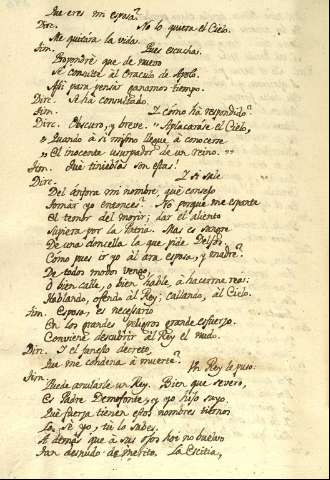 Que eres mi esposa?
Dirc. No lo quiera el Cielo.
Me quitára la vida.
Tim. Pues escucha.
Propondré que de nuevo
Se consulte al Oraculo de Apolo.
Assi para pensar ganamos tiempo.
Dirc. Se ha consultado.
Tim. Y cómo há respondido?
Dirc. Obscuro, y breve. "Aplacaráse el Cielo,
" Quando à sí mismo llegue à conocerse
" El inocente usurpador de un reino. "
Tim. Qué tinieblas son estas!
Dirc. Y si sale
Del anfora mi nombre, qué consejo
Tomar yo entonces? No porque me espante
El temor del morir; dar el aliento
Supiera por la Patria. Mas es sangre
De una doncella la que pide Delfos.
Cómo pues ir yo al ara esposa, y madre?
De todos modos vengo,
O bien calle, o bien hable, à hacerme rea:
Hablando, ofendo al Rey; callando, al Cielo.
Tim. Esposa, es necesario
En los grandes peligros grande esfuerzo.
Conviene descubrir al Rey el nudo.
Dirc. Y el funesto decreto,
Que me condena à muerte?
Tim. Un Rey le puso:
Puede anularle un Rey. Bien que severo,
Es Padre Demofonte, y yo hijo suyo.
Qué fuerza tienen estos nombres tiernos
Lo sé yo, tú lo sabes.
A demás que à sus ojos hoi no buelvo
Tan desnudo de merito. La Escitia,